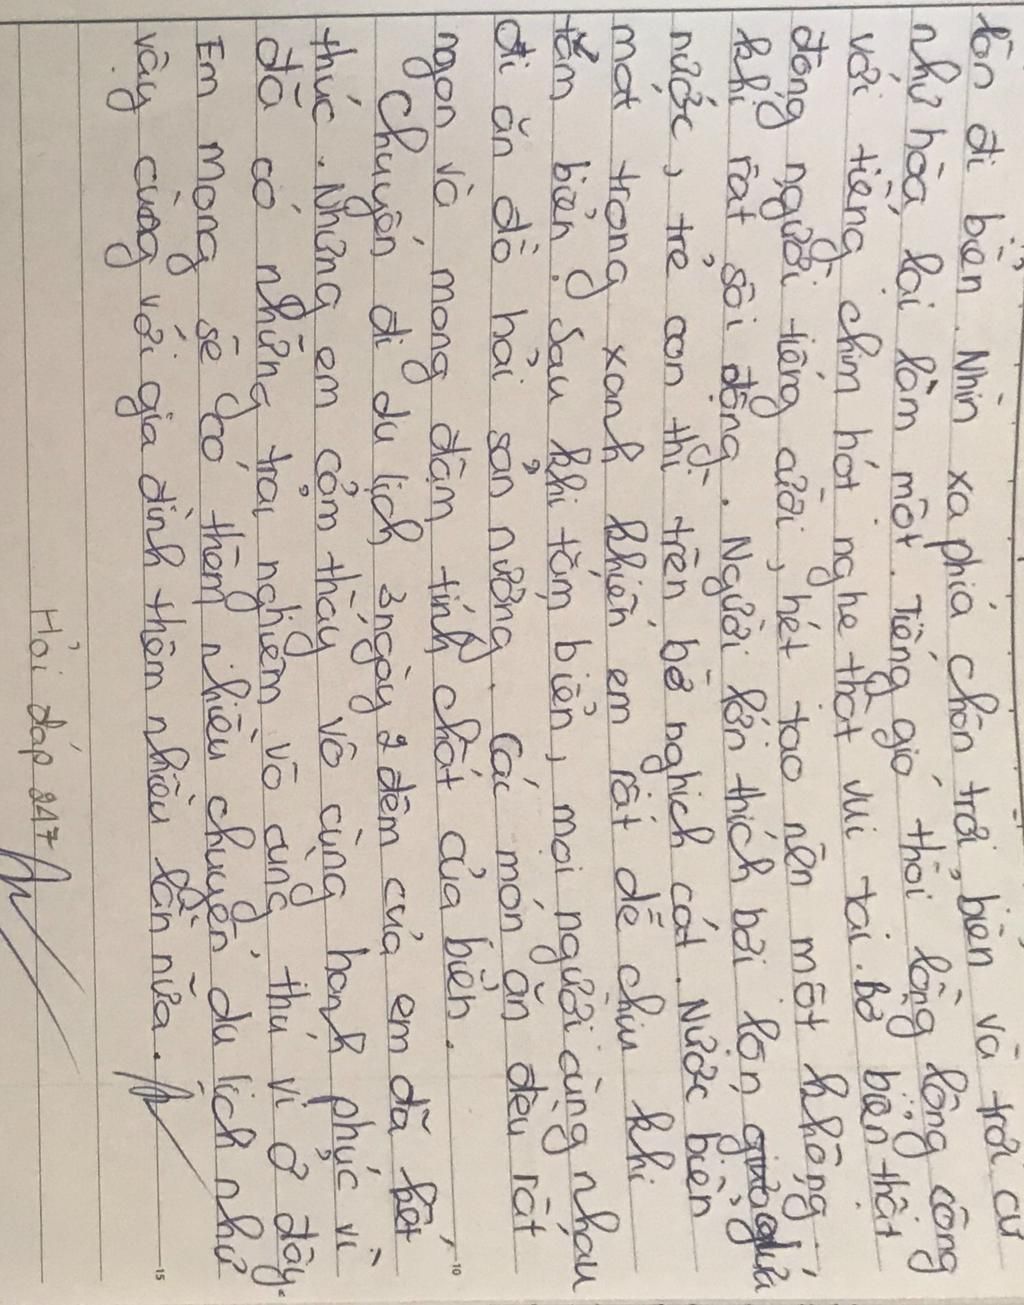 lần đi biển. Nhìn xa phía chân trời, biển và trời cứ
như hòa lại làm một. Tiếng gió thổi lồng lộng cộng
với tiếng chim hót nghe thật vui tai. Bờ biển thật
đông người, tiếng cười, hét tạo nên một không
khí rất sôi động. Người lớn thích bơi lặn giữa
nước, trẻ con thì trên bờ nghịch cát. Nước biển
mát trong xanh khiến em rất dễ chịu khi
tắm biển. Sau khi tắm biển, mọi người cùng nhau
đi ăn đồ hải sản nướng. Các món ăn đều rất
ngon và mang đậm tính chất của biển.
Chuyến đi du lịch 3 ngày 2 đêm của em đã kết
thúc. Nhưng em cảm thấy vô cùng hạnh phúc vì
đã có những trải nghiệm vô cùng thú vị ở đây.
Em mong sẽ có thêm nhiều chuyến du lịch như
vậy cùng với gia đình thêm nhiều lần nữa.
Hỏi đáp 247
10
15